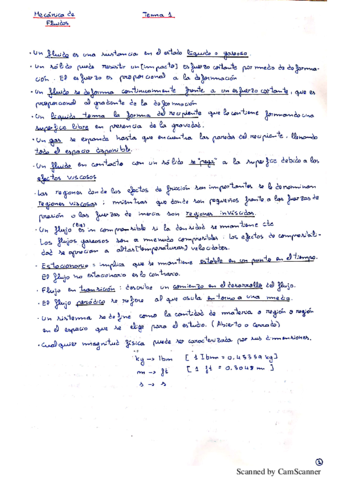 Mecánica de Fluidos
Tema 1
• Un fluido es una sustancia en el estado líquido o gaseoso.
• Un sólido puede resistir un [impacto] esfuerzo cortante por medio de deforma-
ción. El esfuerzo es proporcional a la deformación
• Un fluido se deforma continuamente frente a un esfuerzo cortante, que es
proporcional al gradiente de la deformación
• Un líquido toma la forma del recipiente que lo contiene formando una
superficie libre en presencia de la gravedad.
• Un gas se expande hasta que encuentra las paredes del recipiente, llenando
todo el espacio disponible.
• Un fluido en contacto con un sólido se "pega" a la superficie debido a los
efectos viscosos
• Las regiones donde los efectos de fricción son importantes se le denominan
regiones viscosas; mientras que donde son pequeños frente a las fuerzas de
presión o las fuerzas de inercia son regiones inviscidas.
• Un flujo es incompresible si la densidad se mantiene cte
Los flujos gaseosos son a menudo compresibles. Los efectos de compresibili-
dad se aprecian a altas velocidades.
• Estacionario = implica que se mantiene estable en un punto en el tiempo.
El flujo no estacionario es lo contrario.
• Flujo en transición: describe un comienzo en el desarrollo del flujo.
• El flujo periódico se refiere al que oscila en torno a una media.
• Un sistema se define como la cantidad de materia o región o región
en el espacio que se elige para el estudio. (Abierto o Cerrado)
• Cualquier magnitud física puede ser caracterizada por sus dimensiones.
kg → lbm [1 lbm = 0.45359 kg]
m → ft [1 ft = 0.3048 m]
s → s
1
Scanned by CamScanner